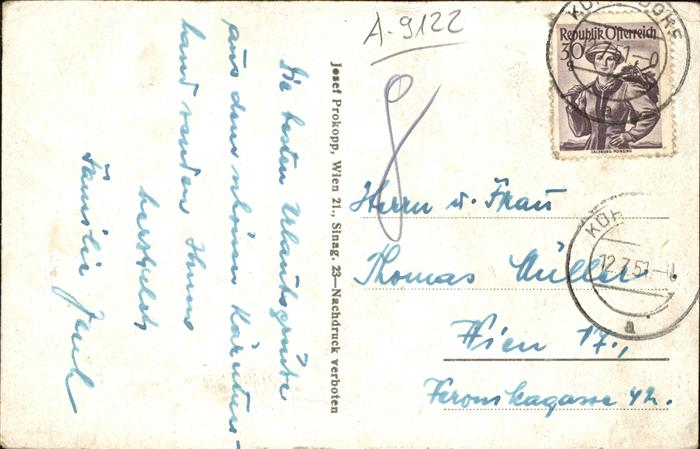 A-9122
8
Die besten Urlaubsgrüße
aus dem schönen Kärntner-
land senden Ihnen
herzlichst
Familie
Josef Prokopp, Wien 21., Sinag. 23—Nachdruck verboten
Republik Österreich
30 g
SALZBURG PONGAU
KÜH DORF
KÜH
12.7.51
a
Herrn u. Frau
Thomas Müller
Wien 17.,
42.